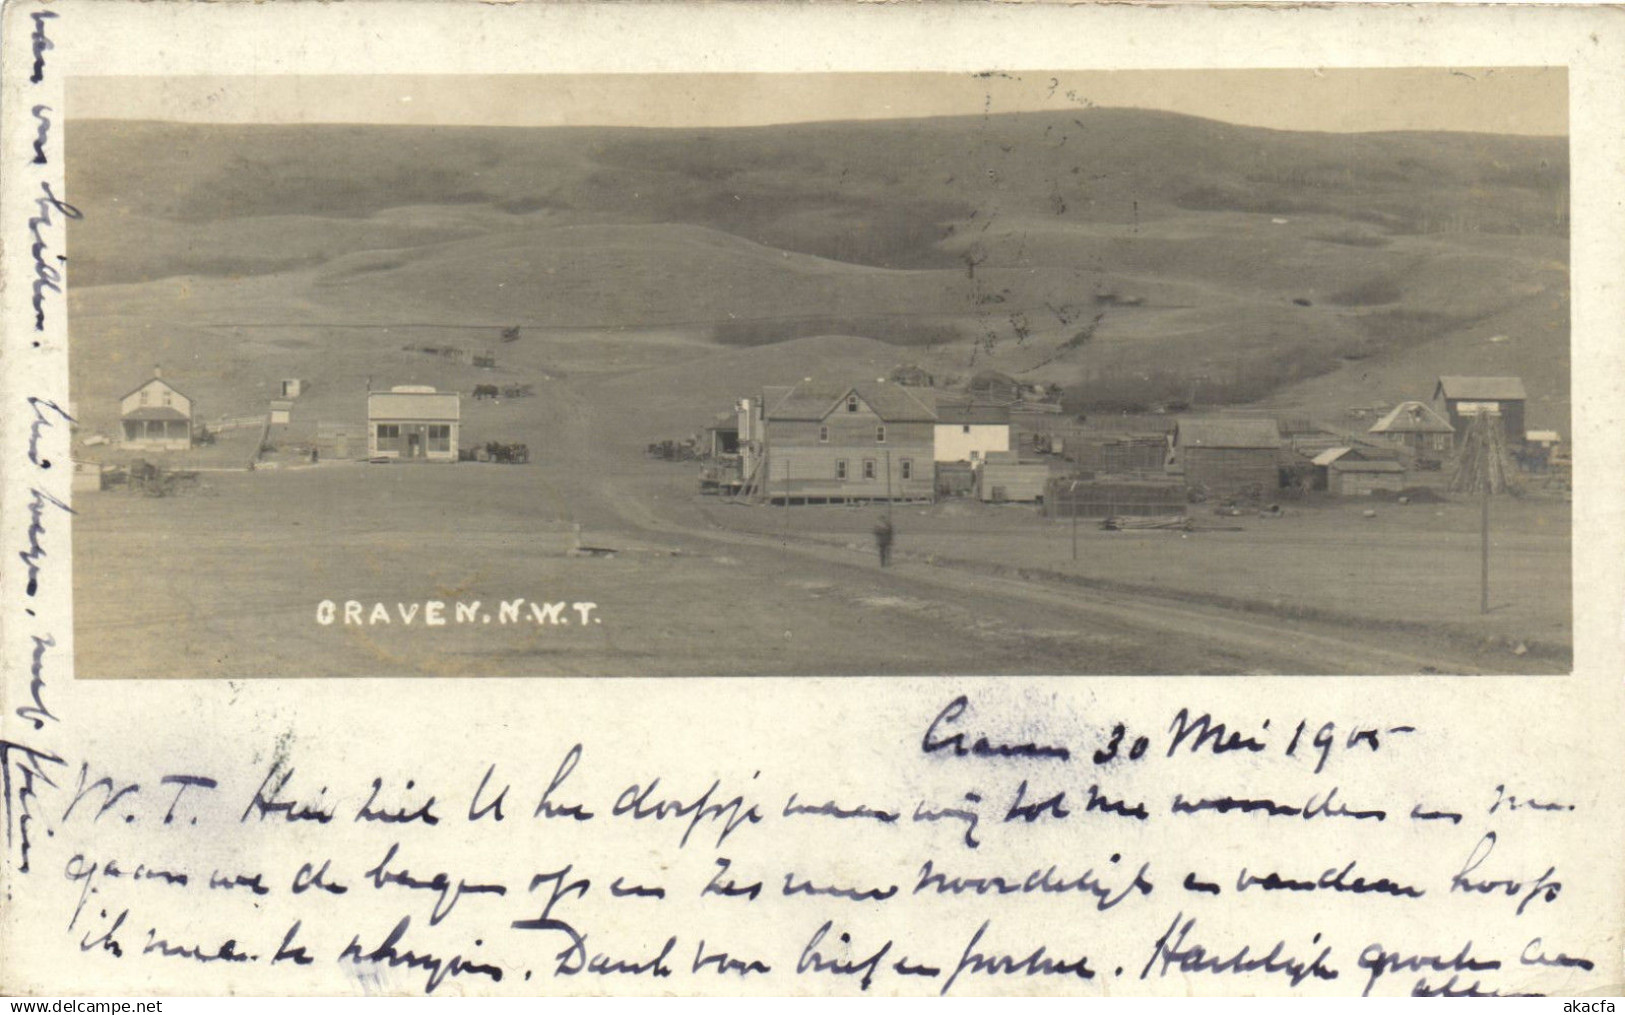 CRAVEN. N.W.T.
Craven 30 Mei 1905
W. T. Hier ziet U het dorpje waar wij tot nu woonden en nu
gaan we de bergen op en zes uur noordelijk en vandaar hoop
ik meer te schrijven. Dank voor brief en portret. Hartelijk groeten aan
allen
van ons beiden.
Hein
akacfa